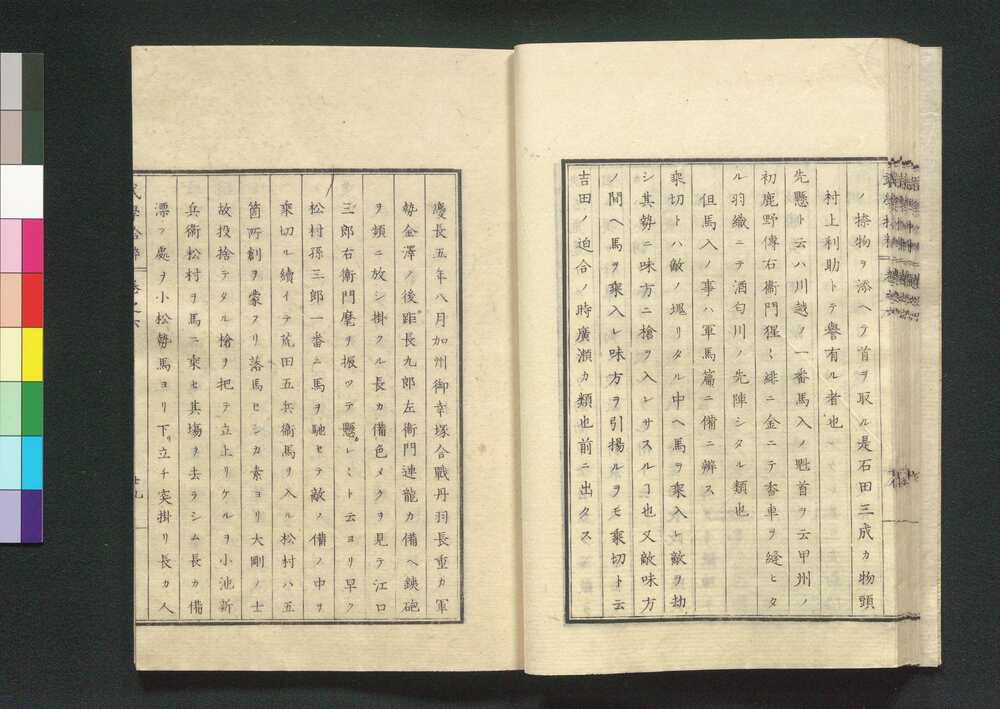 ノ捺物ヲ添ヘテ首ヲ取ル是石田三成カ物頭
村上利助トテ譽有ル者也
先懸ト云ハ川越ノ一番馬入ノ魁首ヲ云甲州ノ
初鹿野傳右衞門猩〻緋ニ金ニテ杏車ヲ縫ヒタ
ル羽織ニテ酒匂川ノ先陣シタル類也
但馬入ノ事ハ軍馬篇ニ備ニ辨ス
乘切トハ敵ノ塊リタル中ヘ馬ヲ乘入レ敵ヲ劫
シ其勢ニ味方ニ槍ヲ入レサスルヿ也又敵味方
ノ間ヘ馬ヲ乘入レ味方ヲ引揚ルヲモ乘切ト云
吉田ノ迫合ノ時廣瀬カ類也前ニ出タス
慶長五年八月加州御幸塚合戰丹羽長重カ軍
勢金澤ノ後距長九郎左衞門連龍カ備ヘ鐵砲
ヲ頻ニ放シ掛クル長カ備色メクヲ見テ江口
三郎右衞門麾ヲ振ツテ懸レ〳〵ト云ヨリ早ク
松村孫三郎一番ニ馬ヲ馳セテ敵ノ備ノ中ヲ
乘切ル續イテ荒田五兵衞馬ヲ入ル松村ハ五
箇所創ヲ蒙フリ落馬セシカ素ヨリ大剛ノ士
故投捨テタル槍ヲ把テ立上リケルヲ小池新
兵衞松村ヲ馬ニ乘セ其塲ヲ去ラシム長カ備
漂フ處ヲ小松勢馬ヨリ下リ立チ突掛リ長カ人